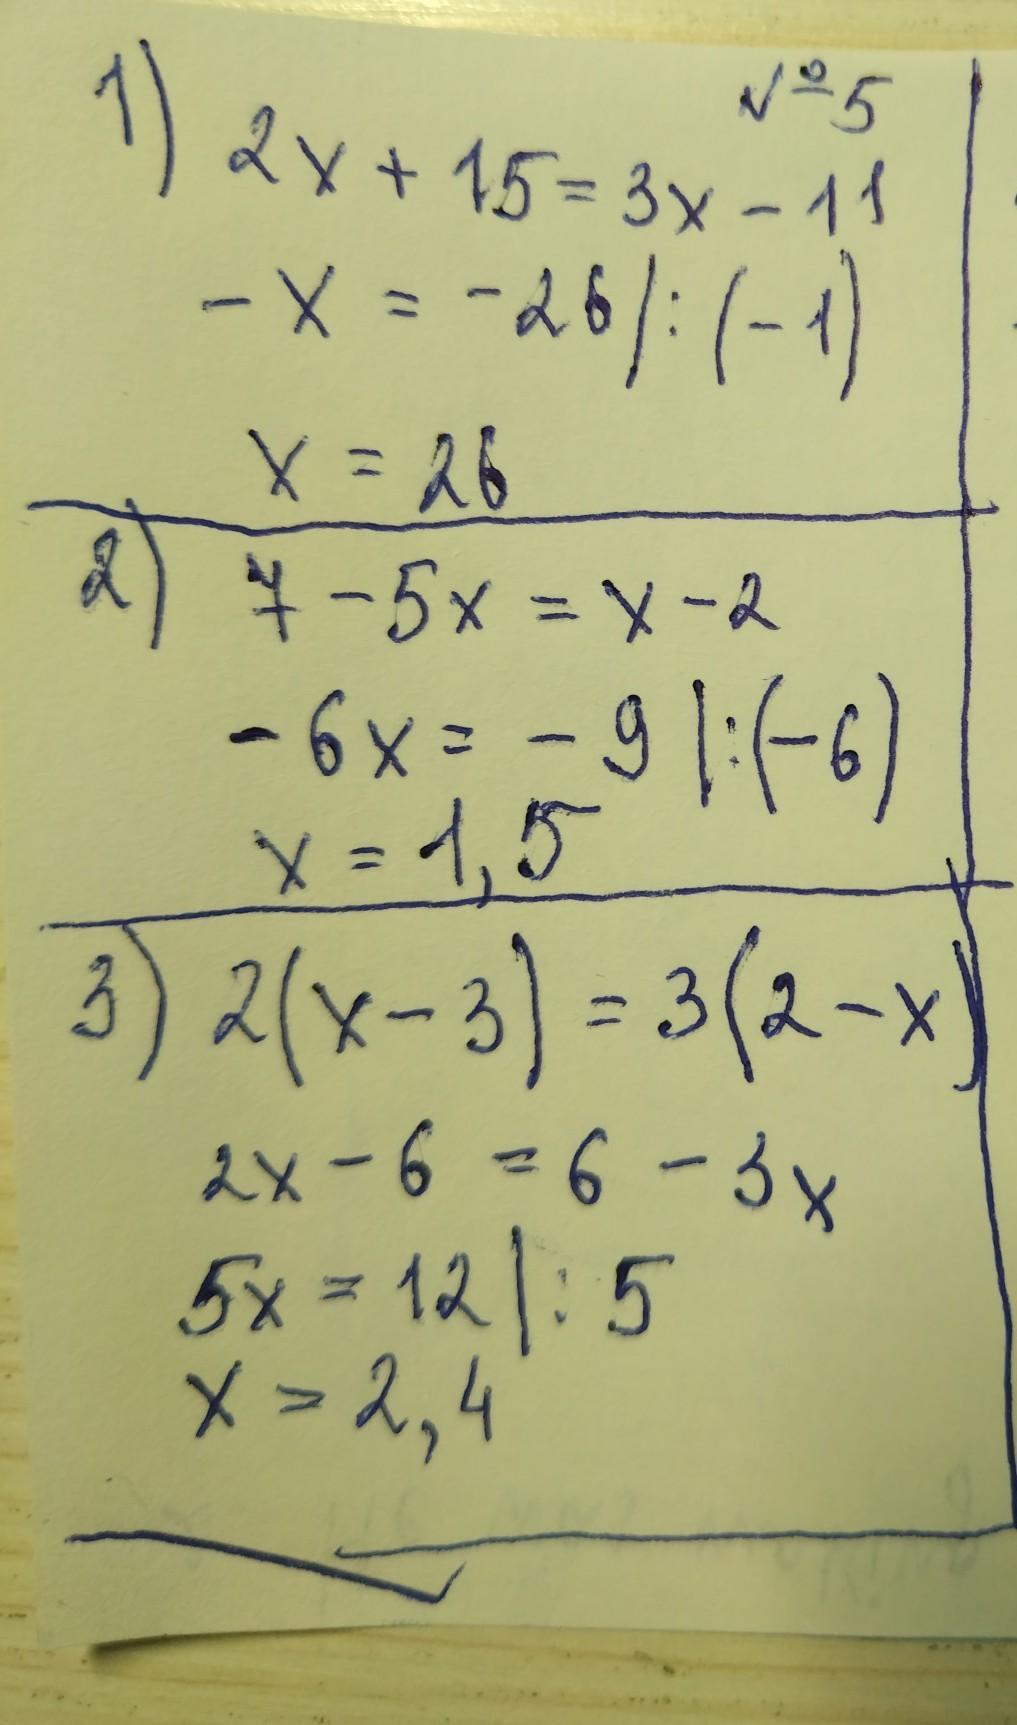 №5
1) 2x + 15 = 3x - 11
-x = -26 |: (-1)
x = 26
2) 7 - 5x = x - 2
-6x = -9 |:(-6)
x = 1,5
3) 2(x - 3) = 3(2 - x)
2x - 6 = 6 - 3x
5x = 12 |: 5
x = 2,4